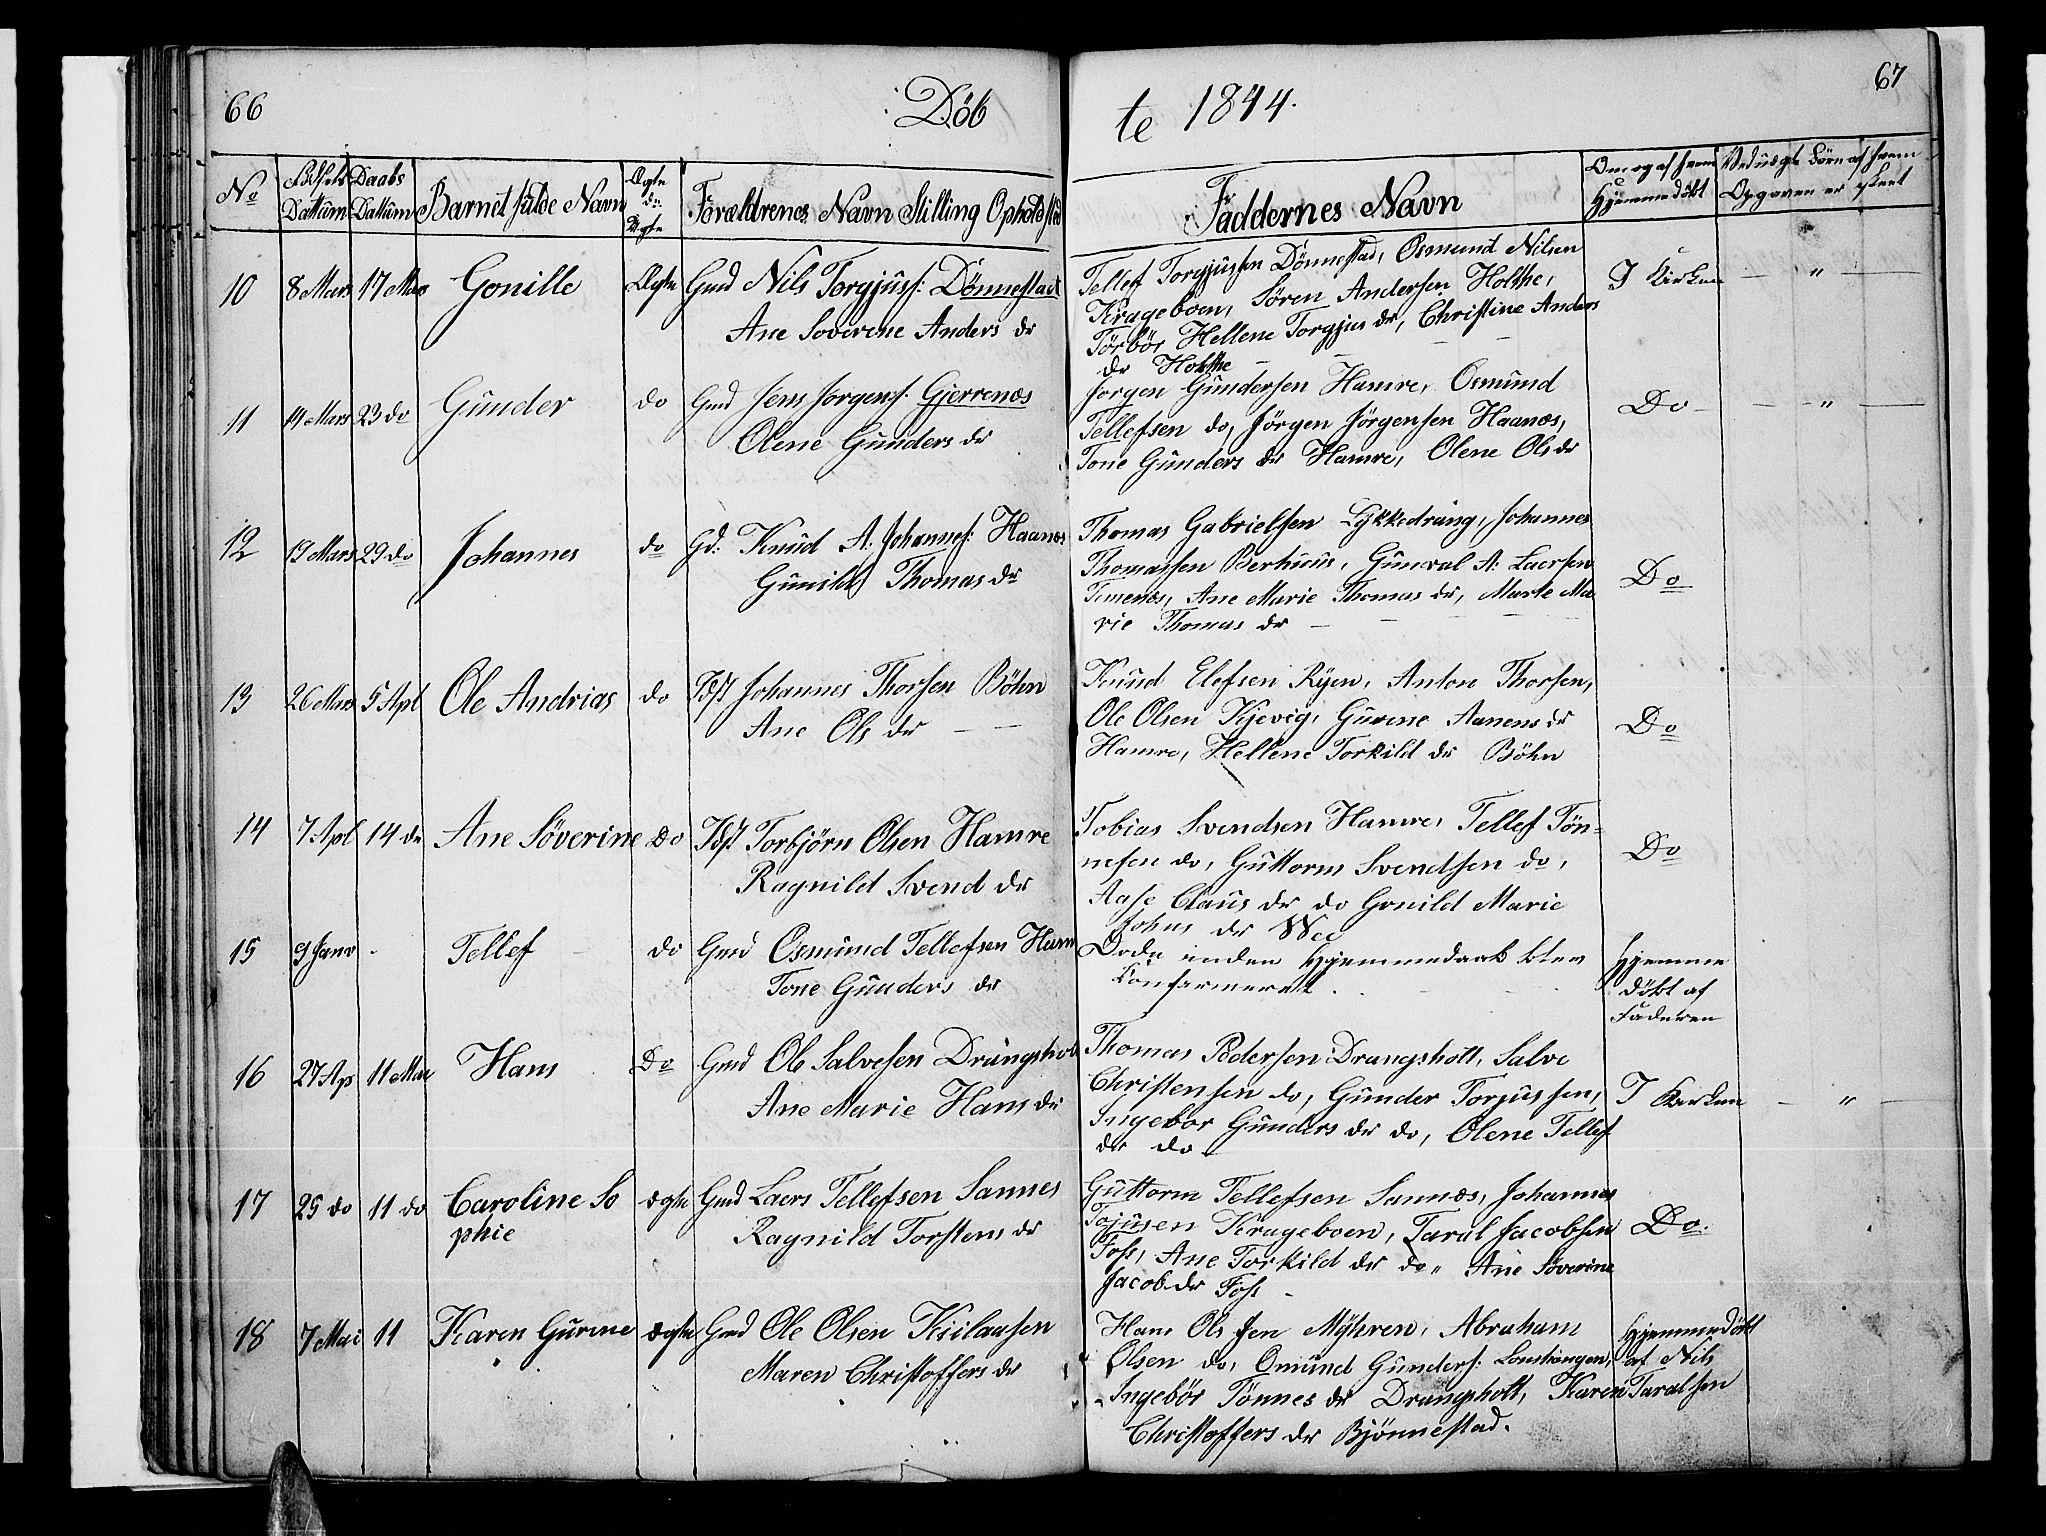 66
Döb
te 1844.
67
No
Fødsels Dattum
Daabs Dattum
Barnet fulde Navn
Ægte
Forældrenes Navn Stilling Opholdsted
Faddernes Navn
Om og af hvem Hjemmedøbt
Opgaven er skeet
10 8 Mars 17 Mars Gonille Ægte Gmd Nils Torgjusf: Dönnestad
Ane Soverine Anders dr
Tellef Torgjussen Dönnestad, Osmund Nilsen
Krageboen, Sören Andersen Holthe,
Torbör Hellene Torgjus dr, Christine Anders
dr Holthe
I Kirken
"
11 14 Mars 23 do Gunder do Gmd Jens Jorgensf: Gjerrenæs
Olene Gunders dr
Jorgen Gundersen Hamre, Osmund
Tellefsen do, Jörgen Jörgensen Haanæs,
Tone Gunders dr Hamre, Olene Ols dr
Do
"
12 19 Mars 29 do Johannes do Gd: Knud A: Johannesf: Haanæs
Gunild Thomas dr
Thomas Gabrielsen Lykkedrang, Johannes
Thomassen Berhuus, Gunval A: Laersen
Timenes, Ane Marie Thomas dr, Marte Ma
rie Thomas dr
Do
13 26 Mars 5 Apl Ole Andrias do Idst Johannes Thorsen Böhn
Ane Ols dr
Knud Elefsen Ryen, Anton Thorsen,
Ole Olsen Kjevig, Gurine Aanens dr
Hamre, Hellene Torkild dr Böhn
Do
14 7 Apl 14 do Ane Söverine Do Idst Torbjörn Olsen Hamre
Ragnild Svend dr
Tobias Svendsen Hamre, Tellef Tön=
nesen do, Guttorm Svendsen do,
Aase Claus dr do Gonild Marie
Johns dr Wee
Do
15 9 Janv Tellef do Gmd Osmund Tellefsen Ham
Tone Gunders dr
Döde inden Hjemmedaab blev
Confarmeret.
Hjemme
döbt af
Faderen
16 27 Ap 11 Mai Hans Do Gmd Ole Salvesen Drangsholt
Ane Marie Hans dr
Thomas Pedersen Drangsholt, Salve
Christensen do, Gunder Torjussen,
Ingebor Gunders dr do, Olene Tellef
dr do
I Kirken
"
17 25 do 11 do Caroline So
phie
ægte Gmd Laers Tellefsen Sannes
Ragnild Torstens dr
Guttorm Tellefsen Sannæs, Johannes
Tojusen Krageboen, Taral Jacobsen
Foss, Ane Torkild dr do, Ane Söverine
Jacob dr Foss
Do.
18 7 Mai 11 Karen Gurine ægte Gmd Ole Olsen
Maren Christoffers dr
Hans Olssen Myhren, Abraham
Olsen do, Omund Gundersf:
Ingebör Tönnes dr Drangsholt, Karen
Christoffers dr Bjönnestad.
Hjemmedöbt
af Nils
Taralsen